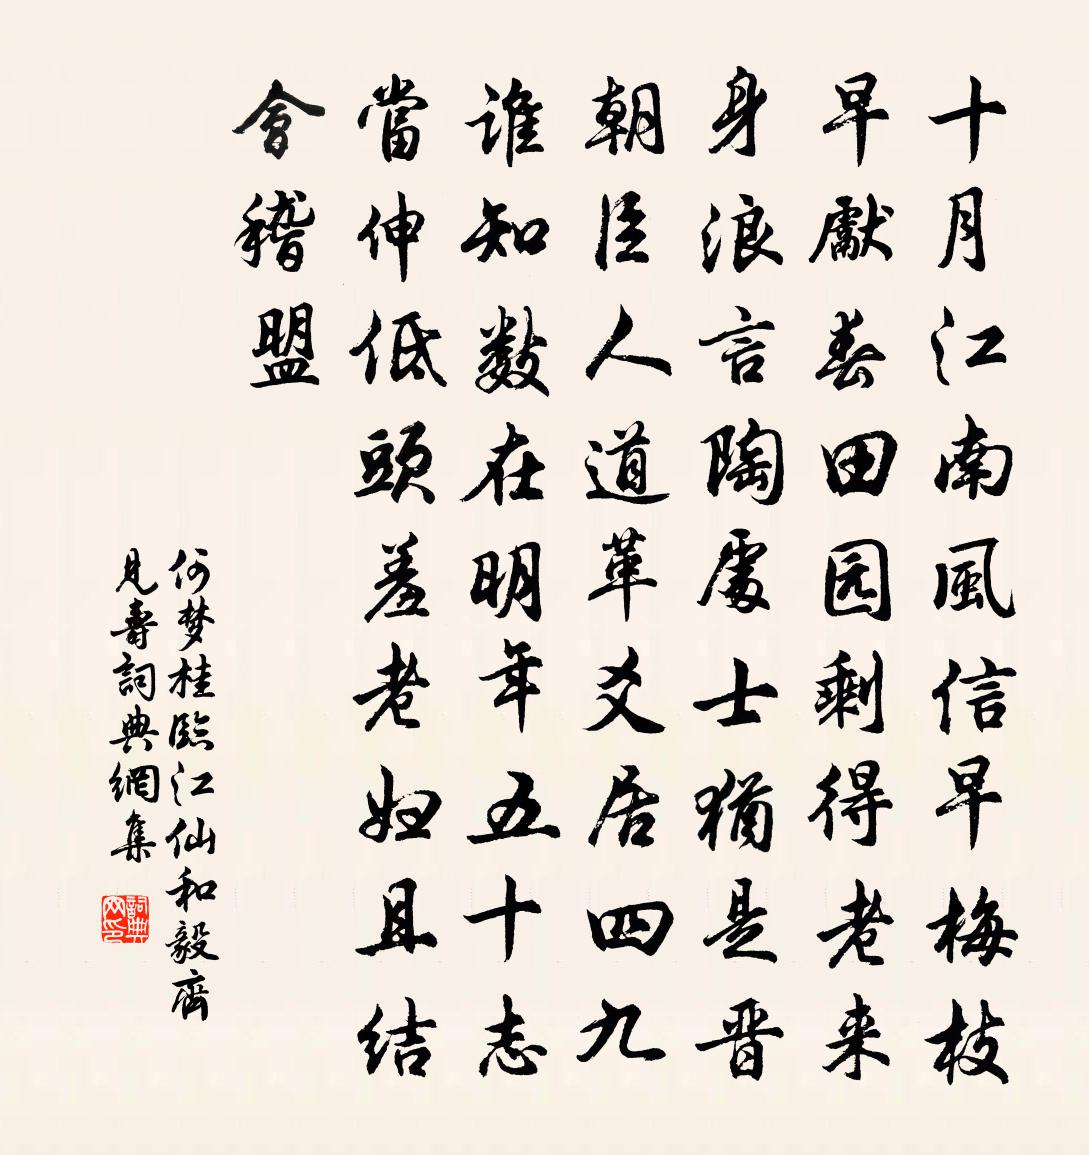 十月江南風信早梅枝
早獻春田园剩得老来
身浪言陶處士猶是晋
朝臣人道革爻居四九
誰知数在明年五十志
當伸低頭羞老妇且结
會稽盟
何梦桂臨江仙和毅齊
見壽詞典網集
詞典网印